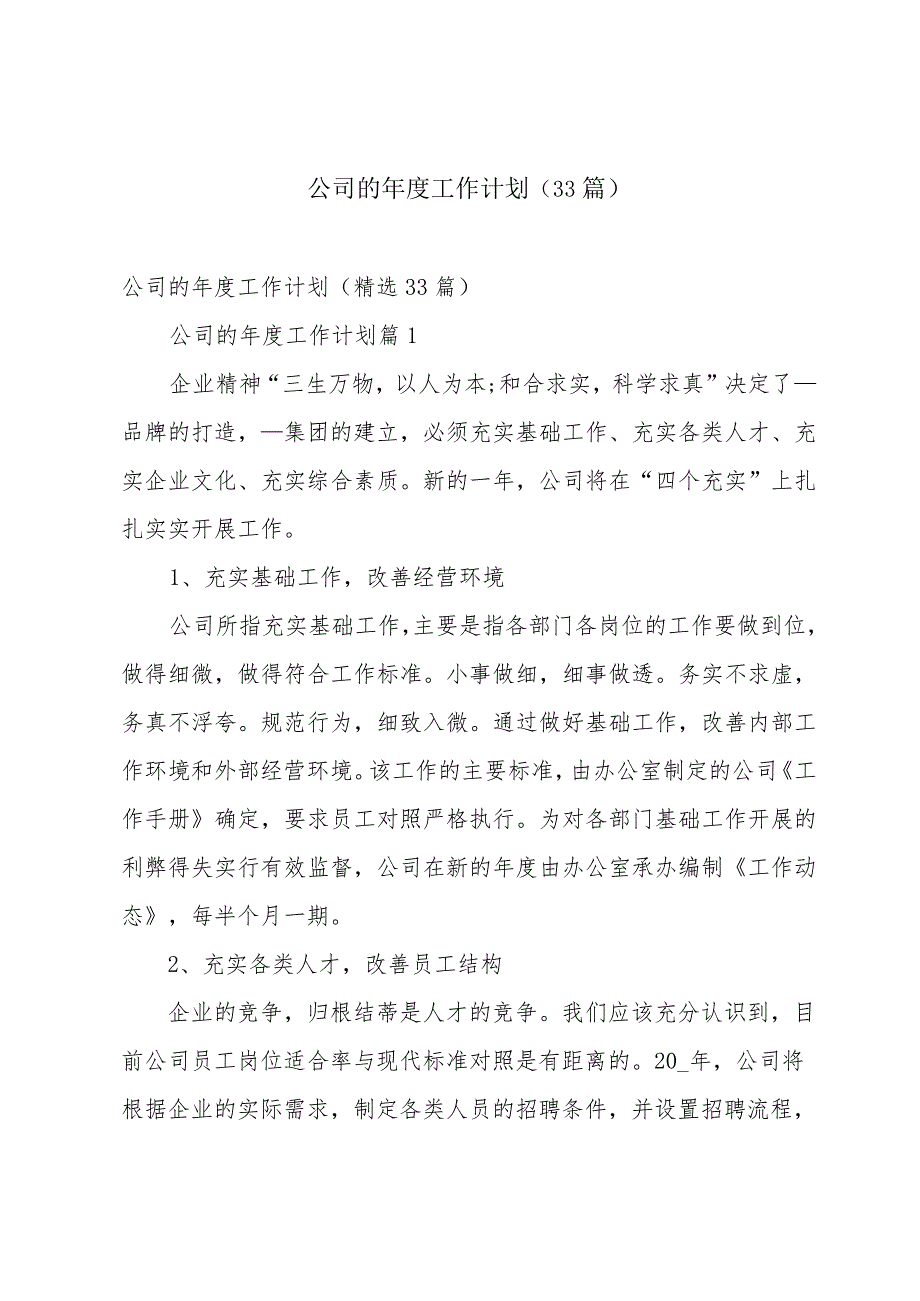 公司的年度工作计划（33 篇）
公司的年度工作计划（精选 33 篇）
公司的年度工作计划篇 1
企业精神“三生万物，以人为本;和合求实，科学求真”决定了—
品牌的打造，—集团的建立，必须充实基础工作、充实各类人才、充
实企业文化、充实综合素质。新的一年，公司将在“四个充实”上扎
扎实实开展工作。
1、充实基础工作，改善经营环境
公司所指充实基础工作，主要是指各部门各岗位的工作要做到位，
做得细微，做得符合工作标准。小事做细，细事做透。务实不求虚，
务真不浮夸。规范行为，细致入微。通过做好基础工作，改善内部工
作环境和外部经营环境。该工作的主要标准，由办公室制定的公司《工
作手册》确定，要求员工对照严格执行。为对各部门基础工作开展的
利弊得失实行有效监督，公司在新的年度由办公室承办编制《工作动
态》，每半个月一期。
2、充实各类人才，改善员工结构
企业的竞争，归根结蒂是人才的竞争。我们应该充分认识到，目
前公司员工岗位适合率与现代标准对照是有距离的。20_年，公司将
根据企业的实际需求，制定各类人员的招聘条件，并设置招聘流程，